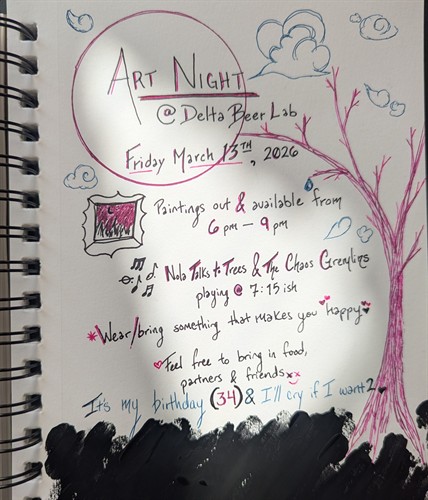 Art Night
@ Delta Beer Lab
Friday March 13TH, 2026
Paintings out & available from
6 pm — 9 pm
Nola Talks to Trees & The Chaos Gremlins
playing @ 7:15 ish
*Wear/bring something that makes you happy
Feel free to bring in food,
partners & friends xx
It's my birthday (34) & I'll cry if I want 2